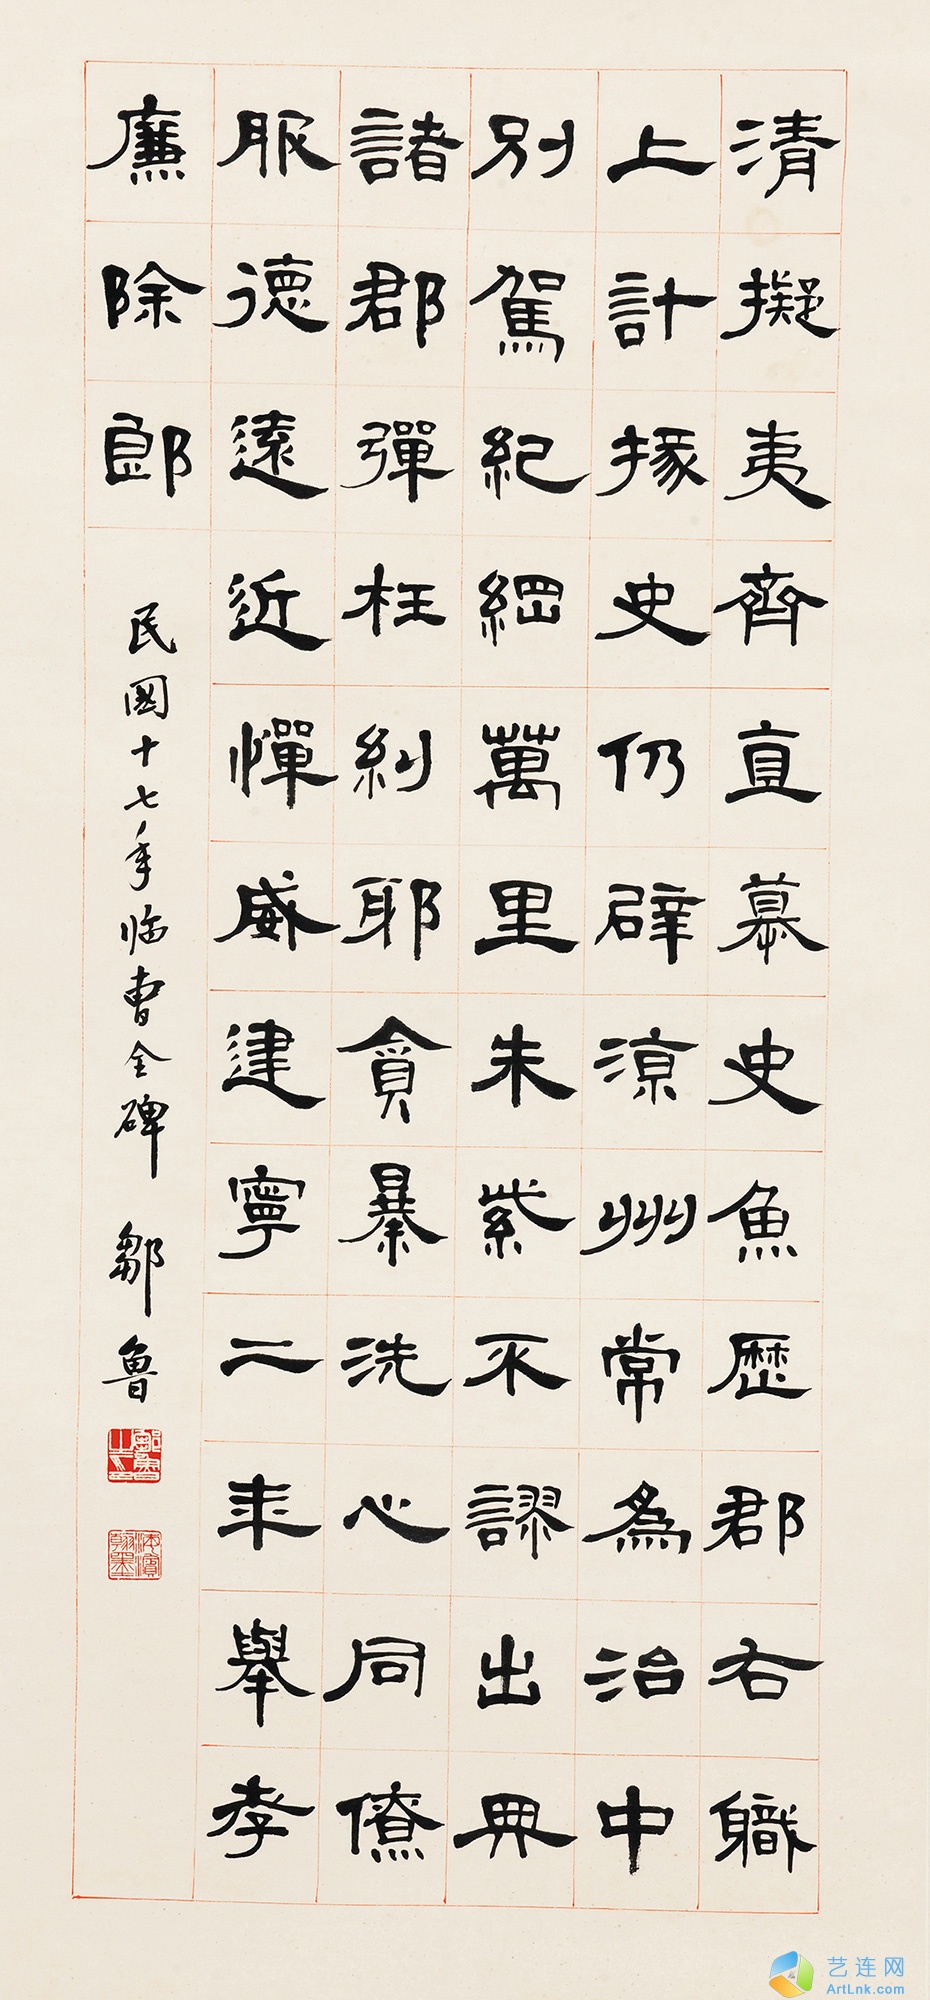 清擬夷齊直慕史魚歷郡右職
上計掾史仍辟涼州常為治中
別駕紀綱萬里朱紫不謬出典
諸郡彈枉糾耶貪暴洗心同僚
服德遠近憚威建寧二年舉孝
廉除郎
民國十七年临曹全碑 鄒魯
鄒魯之印
海濱翰墨
艺连网
ArtLnk.com